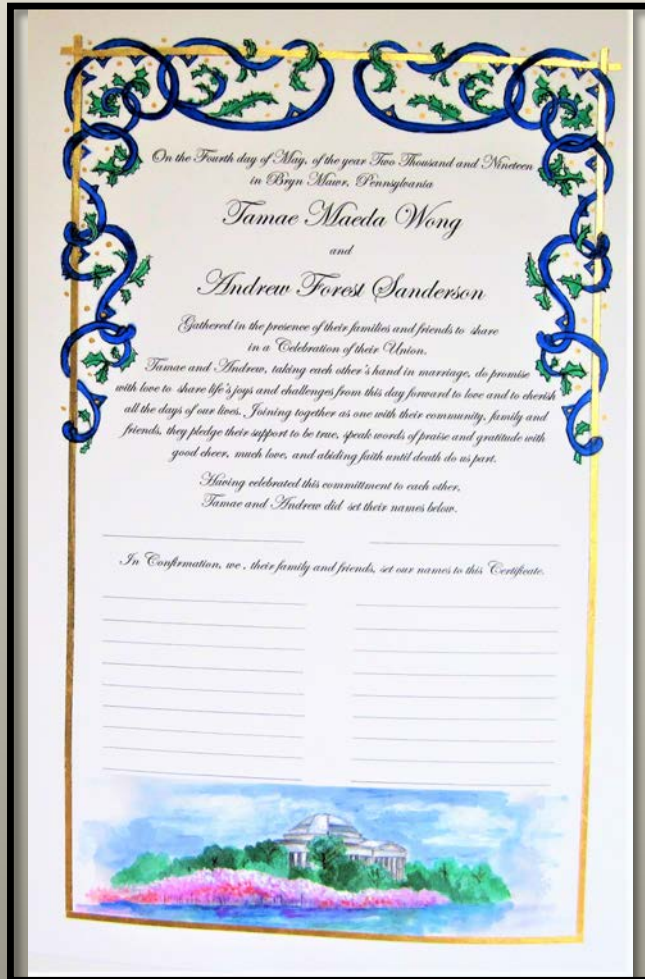 On the Fourth day of May, of the year Two Thousand and Nineteen
in Bryn Mawr, Pennsylvania
Tamae Maeda Wong
and
Andrew Forest Sanderson
Gathered in the presence of their families and friends to share
in a Celebration of their Union.
Tamae and Andrew, taking each other's hand in marriage, do promise
with love to share life's joys and challenges from this day forward to love and to cherish
all the days of our lives. Joining together as one with their community, family and
friends, they pledge their support to be true, speak words of praise and gratitude with
good cheer, much love, and abiding faith until death do us part.
Having celebrated this committment to each other,
Tamae and Andrew did set their names below.
In Confirmation, we , their family and friends, set our names to this Certificate.